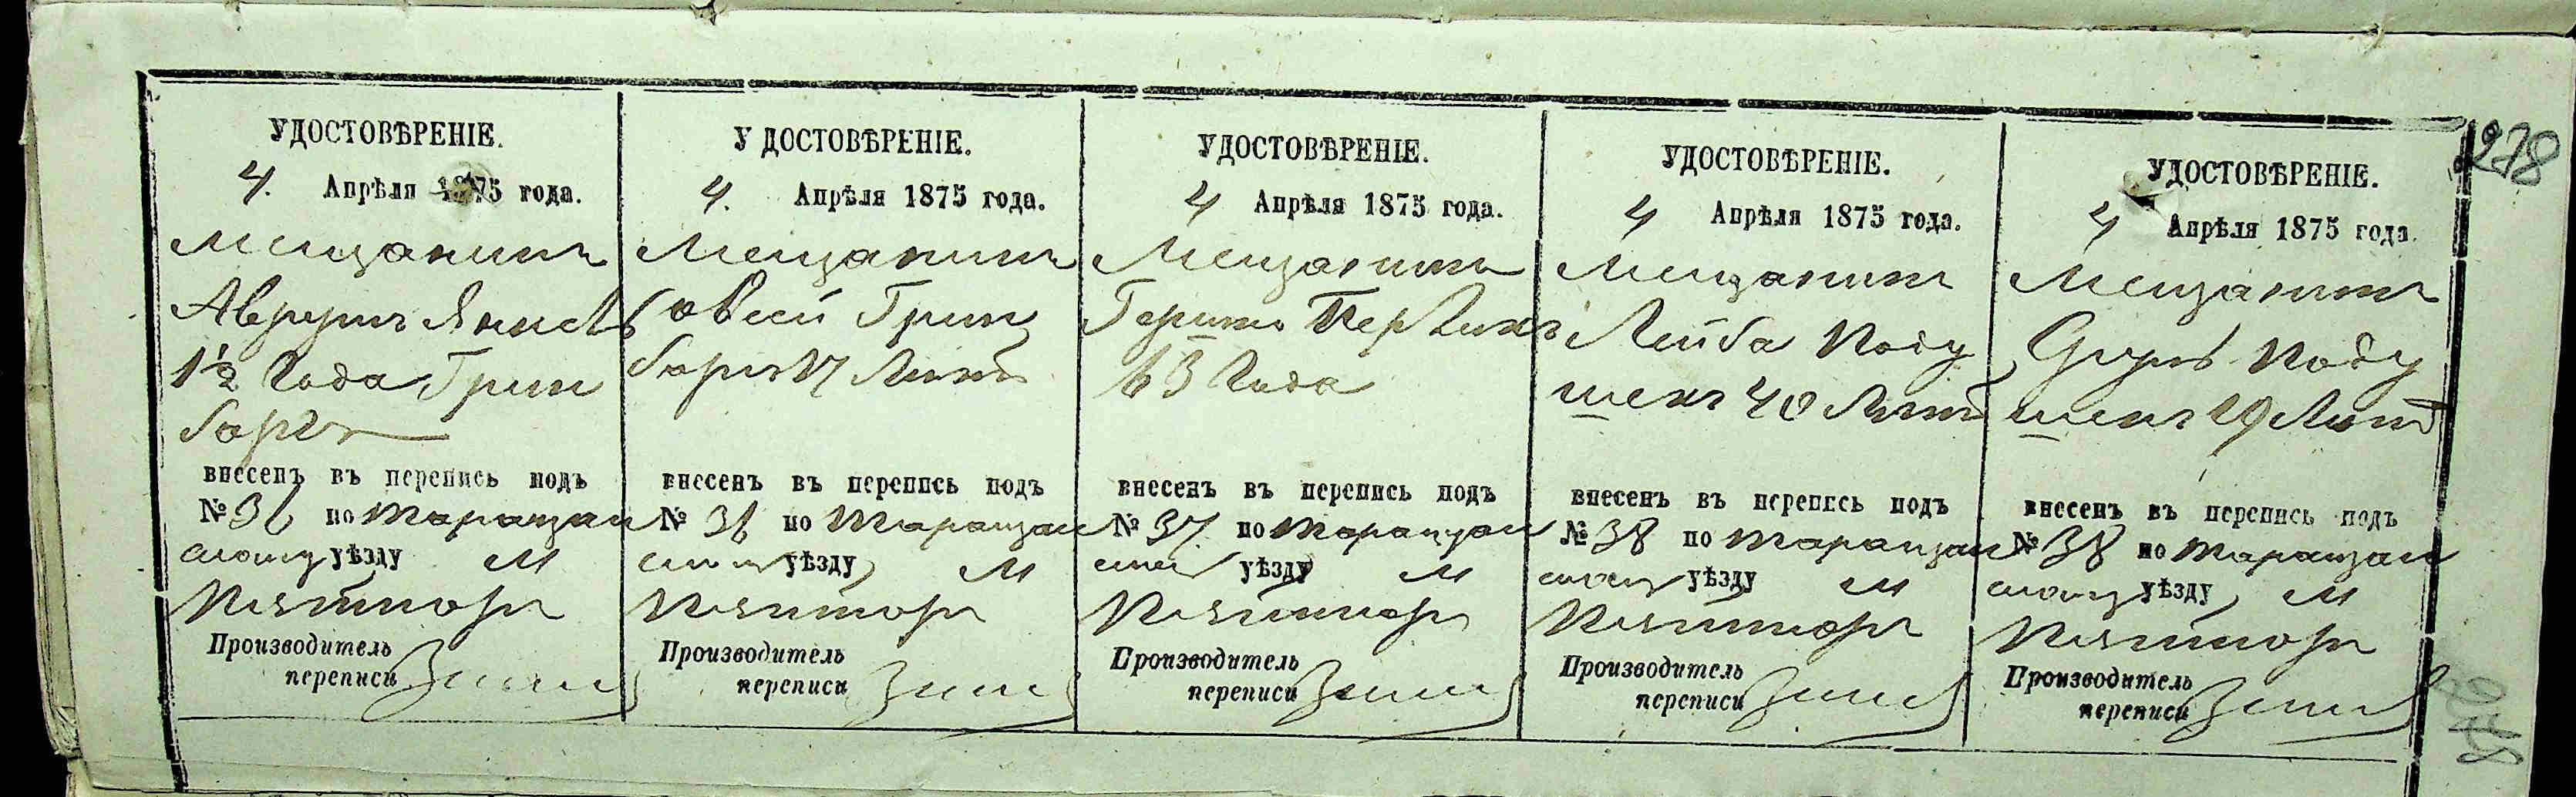 278
УДОСТОВѢРЕНІЕ.
4. Апрѣля 1875 года.
Мещанинъ
Аврумъ
1½ Года Грин
бергъ
внесенъ въ перепись подъ
№ 36 по Таращан
скому уѣзду М
Пятигоръ
Производитель
переписи
УДОСТОВѢРЕНІЕ.
4. Апрѣля 1875 года.
Мещанинъ
Овсей Грин
бергъ 17 Лѣтъ
внесенъ въ перепись подъ
№ 36 по Таращан
скому уѣзду М
Пятигоръ
Производитель
переписи
УДОСТОВѢРЕНІЕ.
4 Апрѣля 1875 года.
Мещанинъ
Гершко
63 Года
внесенъ въ перепись подъ
№ 37. по Таращан
ском уѣзду М
Пятигоръ
Производитель
переписи
УДОСТОВѢРЕНІЕ.
4 Апрѣля 1875 года.
Мещанинъ
Лейба Поду
шекъ 40 Лѣтъ
внесенъ въ перепись подъ
№ 38 по Таращан
скому уѣзду М
Пятигоръ
Производитель
переписи
УДОСТОВѢРЕНІЕ.
4 Апрѣля 1875 года.
Мещанинъ
Сруль Поду
шекъ 19 Лѣтъ
внесенъ въ перепись подъ
№ 38 по Таращан
скому уѣзду М
Пятигоръ
Производитель
переписи